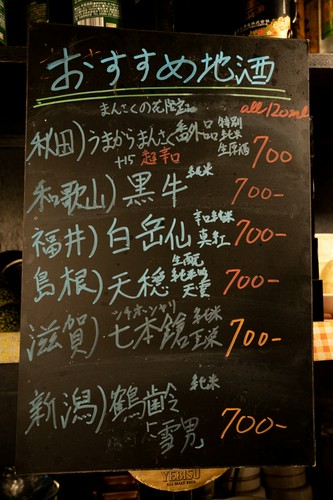 おすすめ地酒
まんさくの花
all 120ml
秋田)うまからまんさく番外品 特別純米 生原酒 700
+15 超辛口
和歌山)黒牛 純米 700-
福井)白岳仙 辛口純米 真紅 700-
島根)天穏 生酛 純米吟 天雲 700-
シチホンヤリ
滋賀)七本鎗 純米 玉栄 700-
新潟)鶴齢 純米
雪男 700-
YEBISU